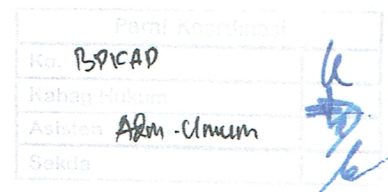 Paraf Koordinasi
Ka. BPKAD
Kabag Hukum
Asisten Adm-Umum
Sekda